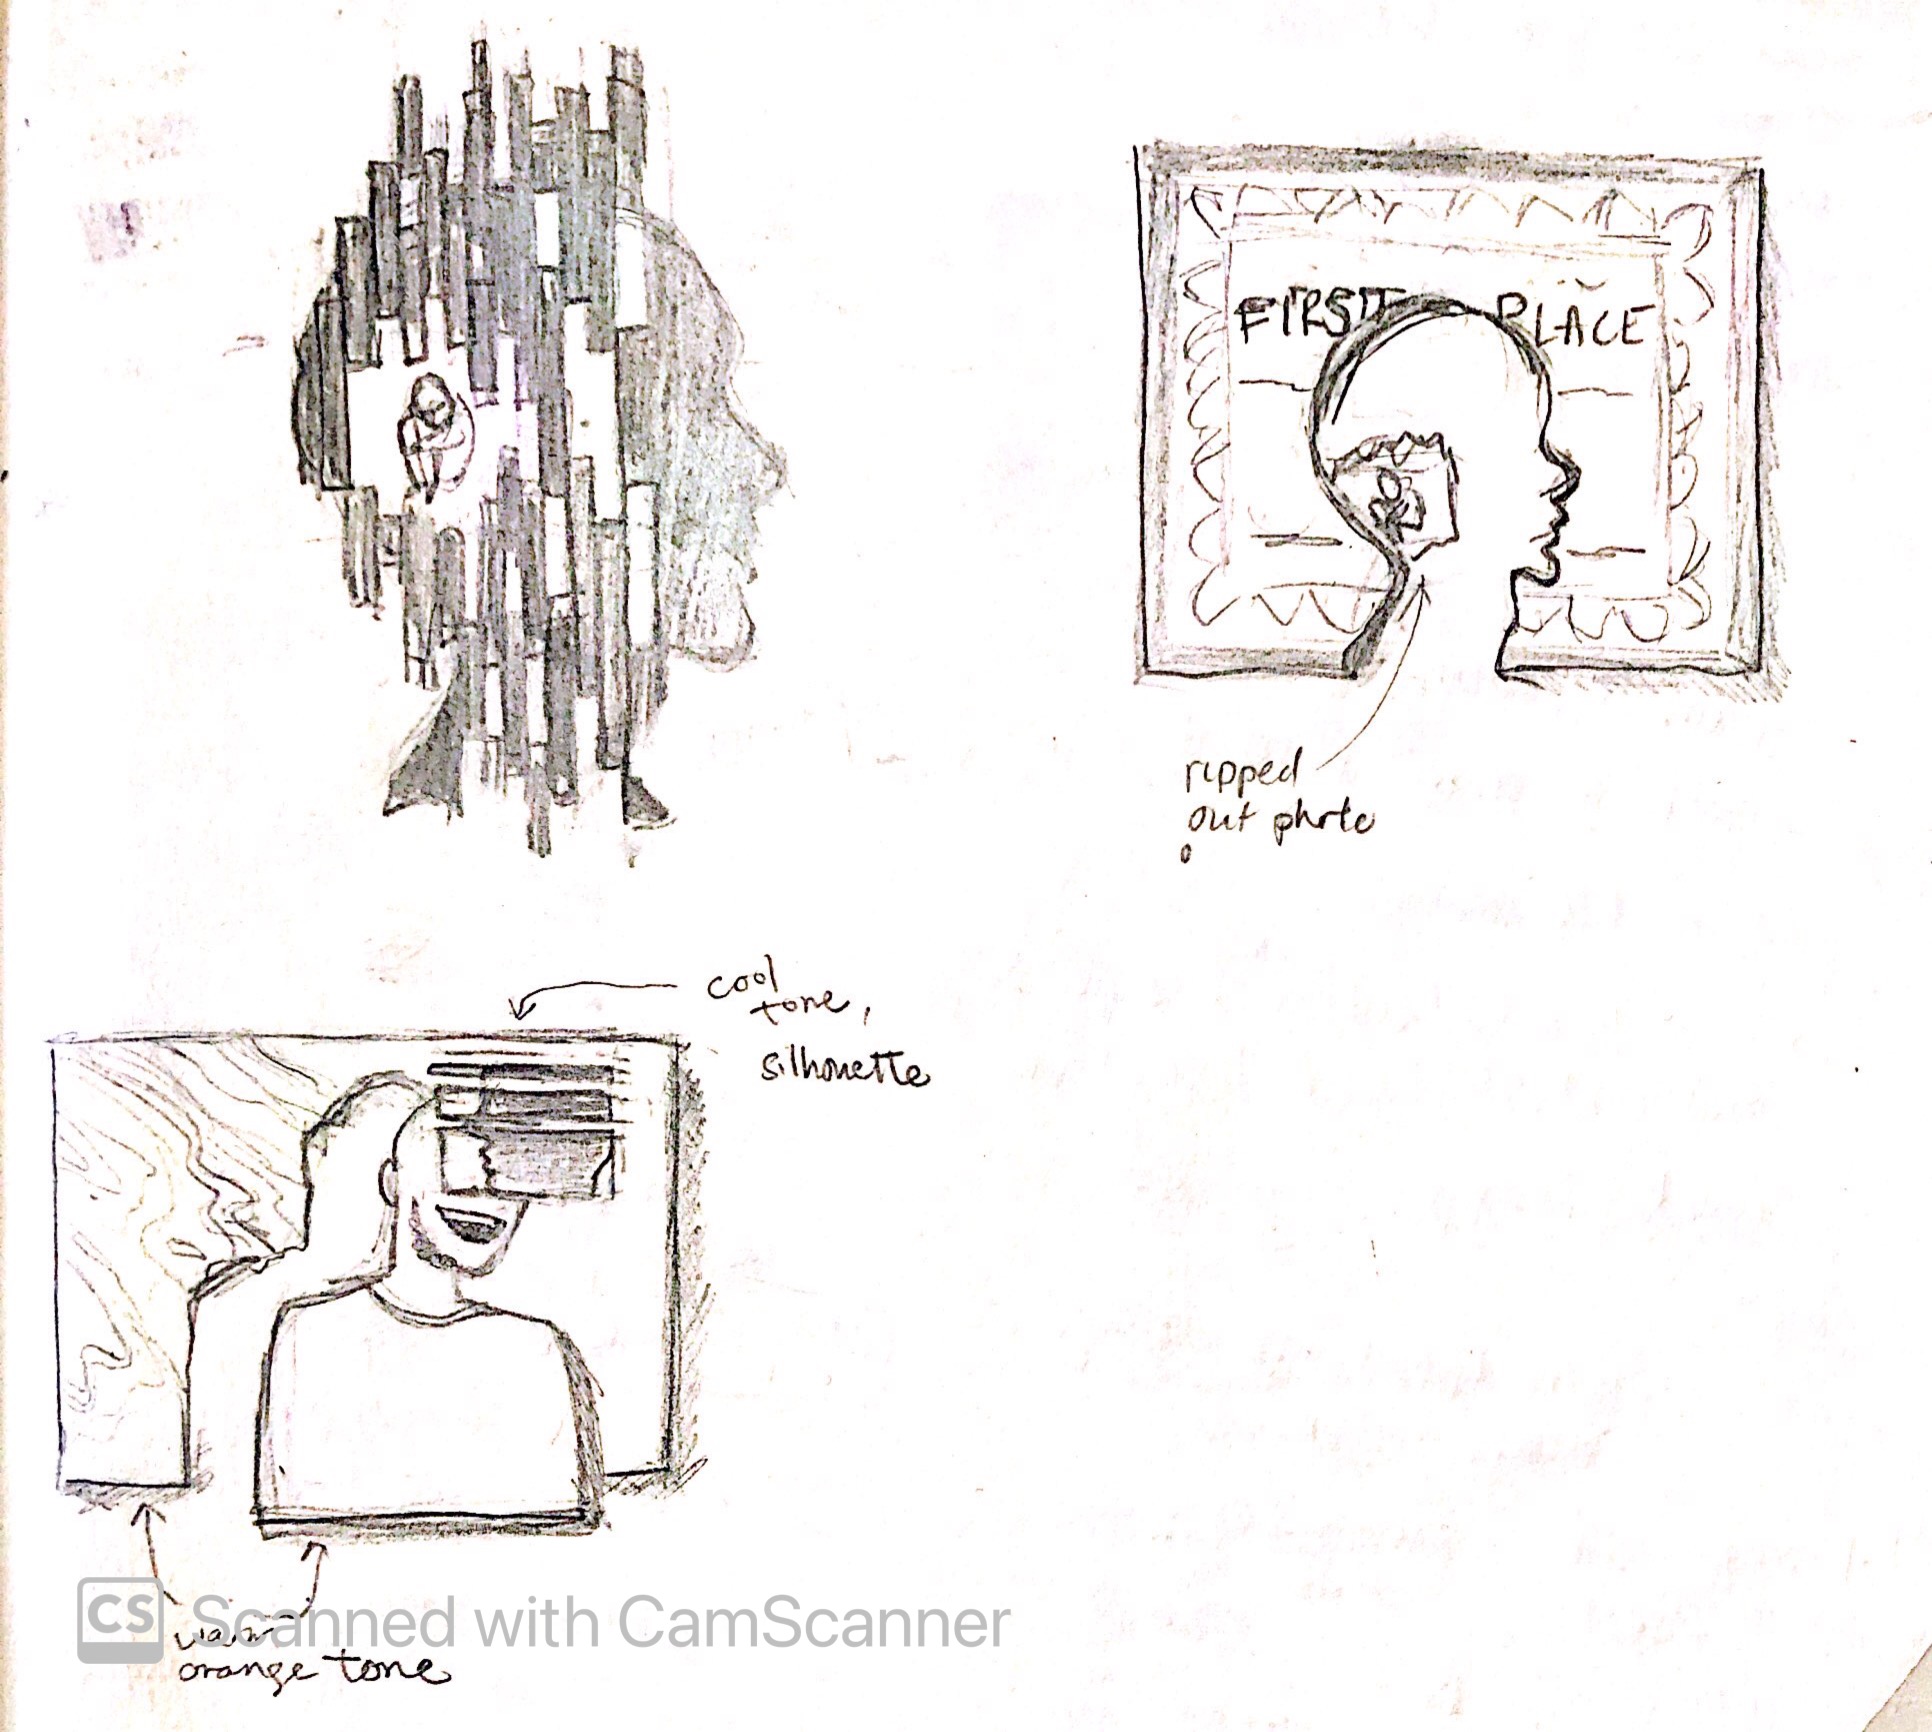 FIRST PLACE
ripped
out photo
cool
tone,
silhouette
warm
orange tone
CS Scanned with CamScanner